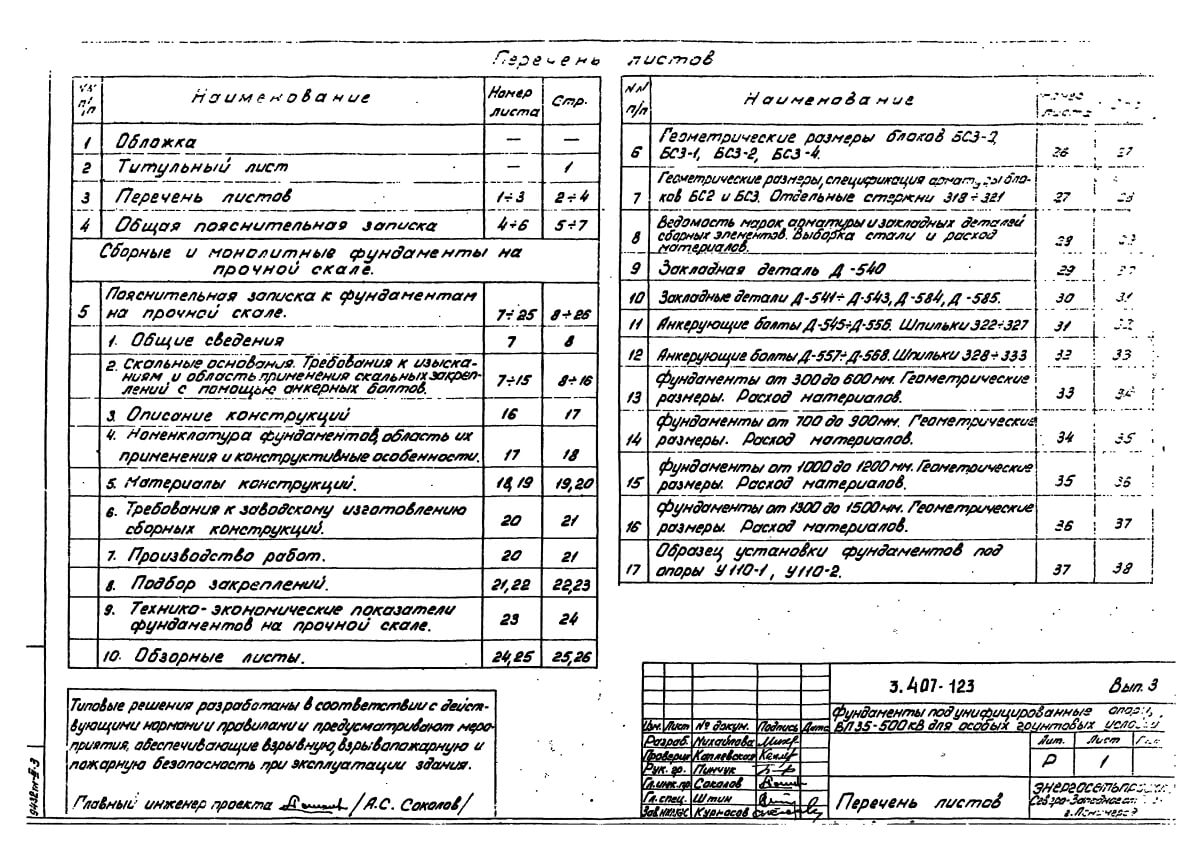 Перечень листов
NN п/п Наименование Номер листа Стр.
1 Обложка — —
2 Титульный лист — 1
3 Перечень листов 1÷3 2÷4
4 Общая пояснительная записка 4÷6 5÷7
Сборные и монолитные фундаменты на
прочной скале.
5 Пояснительная записка к фундаментам
на прочной скале. 7÷25 8÷26
1. Общие сведения 7 8
2. Скальные основания. Требования к изыска-
ниям и область применения скальных закреп-
лений с помощью анкерных болтов. 7÷15 8÷16
3. Описание конструкций 16 17
4. Номенклатура фундаментов, область их
применения и конструктивные особенности. 17 18
5. Материалы конструкций. 18,19 19,20
6. Требования к заводскому изготовлению
сборных конструкций. 20 21
7. Производство работ. 20 21
8. Подбор закреплений. 21,22 22,23
9. Технико-экономические показатели
фундаментов на прочной скале. 23 24
10. Обзорные листы. 24,25 25,26
NN п/п Наименование Номер листа
6 Геометрические размеры блоков БС3-3,
БС3-1, БС3-2, БС3-4. 26 27
Геометрические размеры, спецификация арматуры бло-
7 ков БС2 и БС3. Отдельные стержни 318÷321 27 28
Ведомость марок арматуры и закладных деталей
8 сборных элементов. Выборка стали и расход
материалов.
9 Закладная деталь Д-540 29
10 Закладные детали Д-541÷Д-543, Д-584, Д-585. 30 31
11 Анкерующие болты Д-545÷Д-556. Шпильки 322÷327 31 32
12 Анкерующие болты Д-557÷Д-568. Шпильки 328÷333 32 33
Фундаменты от 300 до 600 мм. Геометрические
13 размеры. Расход материалов. 33 34
Фундаменты от 700 до 900мм. Геометрические
14 размеры. Расход материалов. 34 35
Фундаменты от 1000 до 1200 мм. Геометрические
15 размеры. Расход материалов. 35 36
Фундаменты от 1300 до 1500мм. Геометрические
16 размеры. Расход материалов. 36 37
Образец установки фундаментов под
17 опоры У110-1, У110-2. 37 38
Типовые решения разработаны в соответствии с дейст-
вующими нормами и правилами и предусматривают меро-
приятия, обеспечивающие взрывную, взрывопожарную и
пожарную безопасность при эксплуатации здания.
Главный инженер проекта /А.С. Соколов/
3.407-123 Вып. 3
Фундаменты под унифицированные опоры
ВЛ 35-500 кВ для особых грунтовых условий
Изм. Лист № докум. Подпись Дата
Разраб. Михайлова
Проверил Коплевская
Рук. гр. Пинчук
Гл.инж.пр. Соколов
Гл. спец. Штин
Курносов
Перечень листов
Лит. Лист
Р 1
Энергосетьпроект